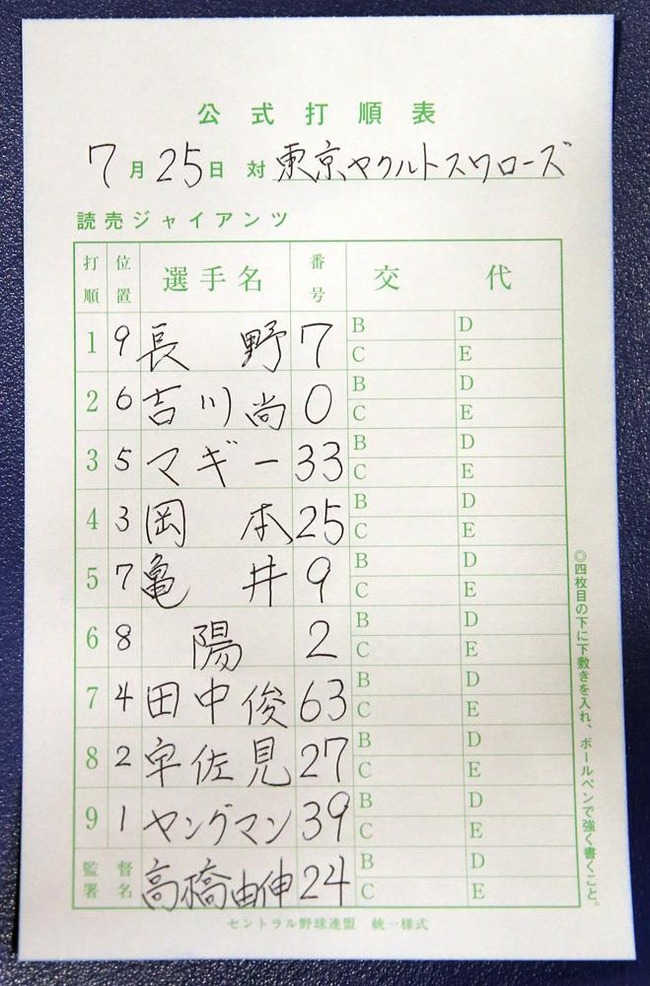 公式打順表
7月25日 対 東京ヤクルトスワローズ
読売ジャイアンツ
打順 位置 選手名 番号 交代
1 9 長野 7 B D C E
2 6 吉川尚 0 B D C E
3 5 マギー 33 B D C E
4 3 岡本 25 B D C E
5 7 亀井 9 B D C E
6 8 陽 2 B D C E
7 4 田中俊 63 B D C E
8 2 宇佐見 27 B D C E
9 1 ヤングマン 39 B D C E
監督署名 高橋由伸 24 B D C E
セントラル野球連盟 統一様式
◎四枚目の下に下敷きを入れ、ボールペンで強く書くこと。